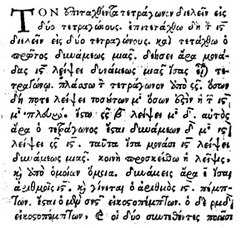 ΤΟΝ ἐπιταχθέντα τετράγωνον διελεῖν εἰς
δύο τετραγώνους. ἐπιτετάχθω δὴ τὸν ιϛ
διελεῖν εἰς δύο τετραγώνους. καὶ τετάχθω ὁ
πρῶτος δυνάμεως μιᾶς. δεήσει ἄρα μονά-
δας ιϛ λείψει δυνάμεως μιᾶς ἴσας εἶναι τε-
τραγώνῳ. πλάσσω τὸν τετράγωνον ἀπὸ ϛϛ. ὅσων
δή ποτε λείψει τοσούτων μο ὅσων ἐστὶν ἡ τῶν ιϛ
μο πλευρά. ἔστω ϛϛ β λείψει μο δ. αὐτὸς
ἄρα ὁ τετράγωνος ἔσται δυνάμεων δ μο ιϛ
λείψει ϛϛ ιϛ. ταῦτα ἴσα μονάσι ιϛ λείψει
δυνάμεως μιᾶς. κοινὴ προσκείσθω ἡ λεῖψις.
καὶ ἀπὸ ὁμοίων ὅμοια. δυνάμεις ἄρα ε ἴσαι
ἀριθμοῖς ιϛ. καὶ γίνεται ὁ ἀριθμὸς ιϛ. πέμπ-
των. ἔσται ὁ μὲν σνϛ εἰκοστοπέμπτων. ὁ δὲ ρμδ
εἰκοστοπέμπτων. καὶ οἱ δύο συντεθέντες ποιοῦσι